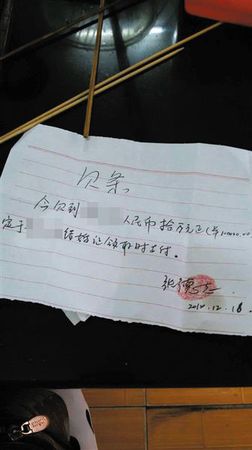 欠条
今欠到 人民币拾万元正(¥100000.00
定于 结婚证领取时支付。
张德
2010.12.18.